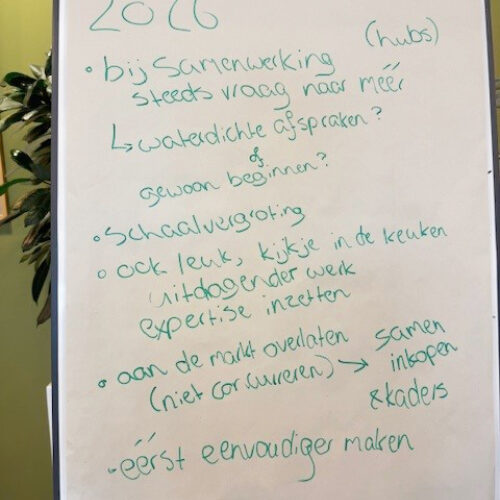 2026
(hubs)
• bij samenwerking
steeds vraag naar méér
↳ waterdichte afspraken?
of
gewoon beginnen?
• schaalvergroting
• ook leuk, kijkje in de keuken
uitdagender werk
expertise inzetten
• aan de markt overlaten
(niet concurreren) → samen
inkopen
& kaders
- éérst eenvoudiger maken